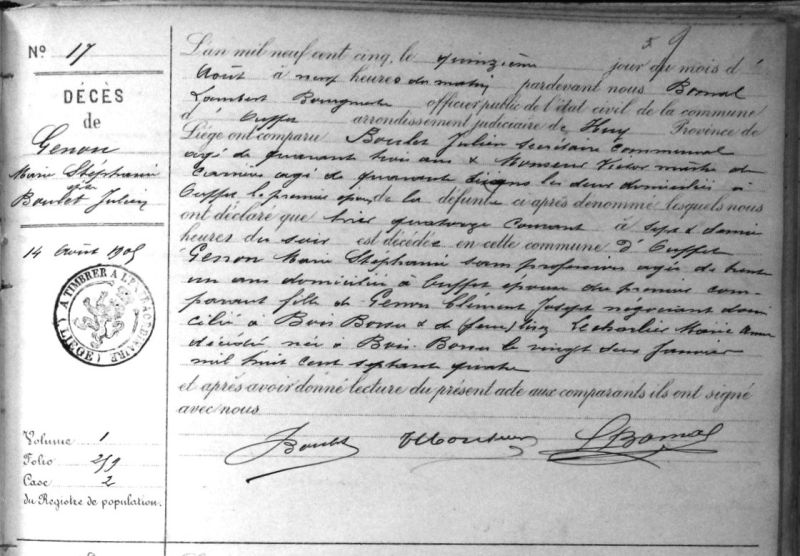 59
N° 17
DÉCÈS
de
Genon
Marie Stéphanie
Boulet Julien
14 Août 1905
A TIMBRER A L'EXTRAORDINAIRE
(LIÈGE)
Volume 1
Folio 219
Case 2
du Registre de population.
L'an mil neuf cent cinq, le quinzième jour du mois d'
Août à neuf heures du matin pardevant nous Bomal
Lambert officier public de l'état civil de la commune
d' Ouffet arrondissement judiciaire de Huy Province de
Liège ont comparu Boulet Julien secrétaire communal
agé de quarante trois ans & Monseur Victor maître de
Carrières agé de quarante ans les deux domiciliés à
Ouffet le premier époux de la défunte ci après dénommé lesquels nous
ont déclaré que hier quatorze courant à sept & demie
heures du soir est décédée en cette commune d' Ouffet
Genon Marie Stéphanie sans profession agée de trente
un ans domiciliée à Ouffet épouse du premier com-
parant fille de Genon Clément Joseph négociant domi-
cilié à Bois Borsu & de Lecharlier Marie Anne
décédée née à Bois Borsu le vingt deux Janvier
mil huit cent septante quatre
et après avoir donné lecture du présent acte aux comparants ils ont signé
avec nous
Boulet V Monseur L Bomal